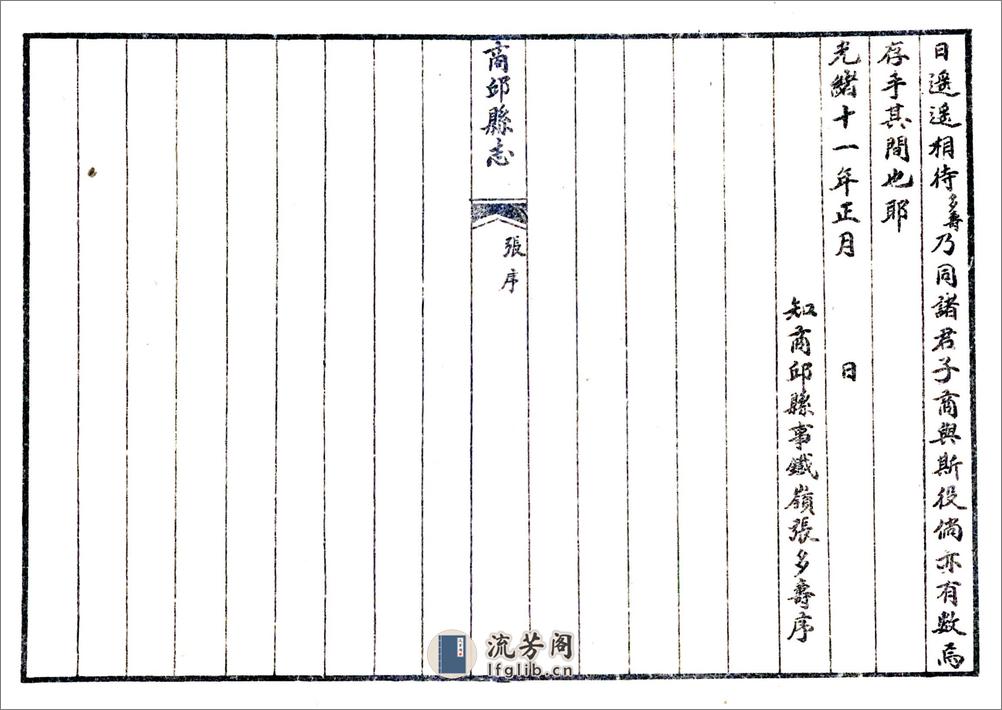 日遥遥相待多壽乃同諸君子商與斯役倘亦有數焉
存乎其間也耶
光緒十一年正月 日
知商邱縣事鐵嶺張多壽序
商邱縣志
張序
流芳阁
lfglib.cn